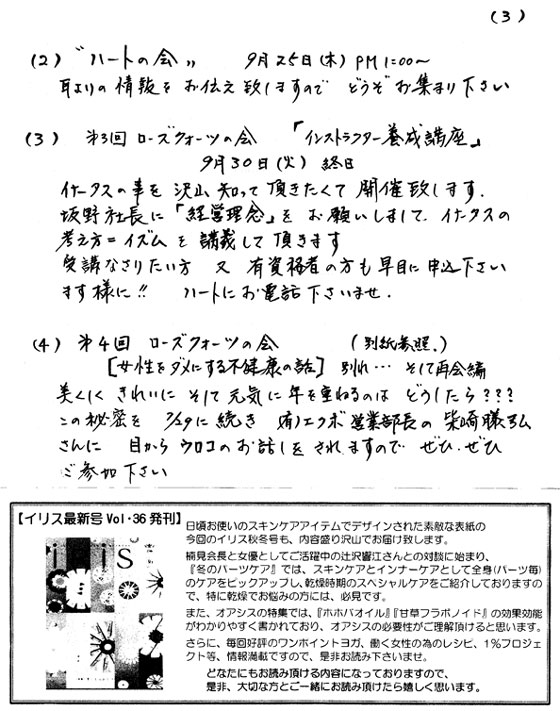 (3)
(2) "ハートの会" 9月25日(木) PM1:00~
耳よりの情報をお伝え致しますので どうぞお集まり下さい
(3) 第3回 ローズクォーツの会 「インストラクター養成講座」
9月30日(火) 終日
イータスの事を沢山知って頂きたくて開催致します.
坂野社長に「経営理念」をお願いしまして、イータスの
考え方=イズムを講義して頂きます
受講なさりたい方 又 有資格者の方も早目に申込下さい
ます様に!! ハートにお電話下さいませ.
(4) 第4回 ローズクォーツの会 (別紙参照.)
[女性をダメにする不健康の話] 別れ… そして再会編
美しく きれいに そして元気に年を重ねるのは どうしたら???
この秘密を 7/29に続き (有)エクボ営業部長の 柴崎
さんに 目からウロコのお話しをされますので ぜひ.ぜひ
ご参加下さい
【イリス最新号Vol・36発刊】
日頃お使いのスキンケアアイテムでデザインされた素敵な表紙の
今回のイリス秋冬号も、内容盛り沢山でお届け致します。
楠見会長と女優としてご活躍中の辻沢響江さんとの対談に始まり、
『冬のパーツケア』では、スキンケアとインナーケアとして全身(パーツ毎)
のケアをピックアップし、乾燥時期のスペシャルケアをご紹介しておりますの
で、特に乾燥でお悩みの方には、必見です。
また、オアシスの特集では、『ホホバオイル』『甘草フラボノイド』の効果効能
がわかりやすく書かれており、オアシスの必要性がご理解頂けると思います。
さらに、毎回好評のワンポイントヨガ、働く女性の為のレシピ、1%プロジェ
クト等、情報満載ですので、是非お読み下さいませ。
どなたにもお読み頂ける内容になっておりますので、
是非、大切な方とご一緒にお読み頂けたら嬉しく思います。
iiS